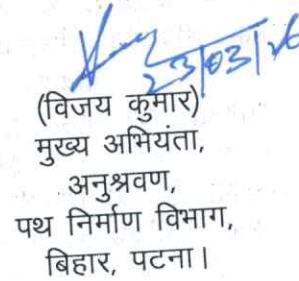 23/03/26
(विजय कुमार)
मुख्य अभियंता,
अनुश्रवण,
पथ निर्माण विभाग,
बिहार, पटना।